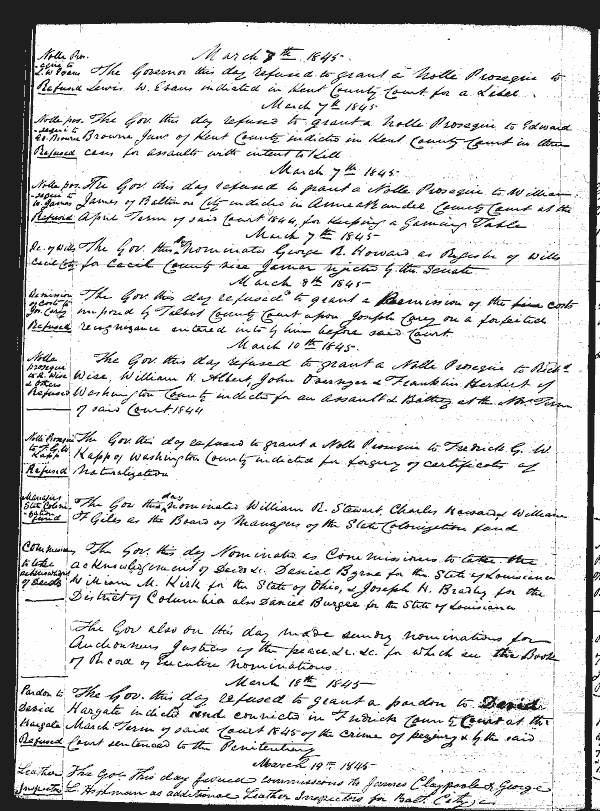 March 7th 1845
Nolle Pros.
-equi to
L. W Evans
Refused
The Governor this day refused to grant a Nolle Prosequi to
Lewis W. Evans indicted in Kent County Court for a Libel.
March 7th 1845
Nolle pros.
-sequi to
Ed. Browne
Refused
The Gov. this day refused to grant a Nolle Prosequi to Edward
Browne Junr of Kent County indicted in Kent County Court in three
cases for assaults with intent to Kill
March 7th 1845
Nolle pros.
-sequi to
W. James
Refused
The Gov this day refused to grant a Nolle Prosequi to William
James of Baltimore City indicted in Anne Arundel County Court at the
April Term of said Court 1844, for Keeping a Gaming Table
March 7th 1845
Re. of Wills
Cecil Co.
The Gov. this day nominated George R. Howard as Register of Wills
for Cecil County vice James rejected by the Senate
March 8th 1845
Remission
of costs to
Jos. Carey
Refused
The Gov. this day refused to grant a Remission of the fine costs
imposed by Talbot County Court upon Joseph Carey on a forfeited
recognizance entered into by him before said Court
March 10th 1845.
Nolle
prosequi
to R. Wise
& others
Refused
The Gov this day refused to grant a Nolle Prosequi to Richd
Wise, William H. Albert, John & Franklin Herbert of
Washington County indicted for an assault & Battery at the Nov. Term
of said Court 1844
Nolle Prosequi
to F. G. W
Kapp
Refused
The Gov. this day refused to grant a Nolle Prosequi to Fredrick G. W
Kapp of Washington County indicted for forgery of certificate of
Naturalization
Managers
State Coloni
-zation
fund
The Gov this day nominated William R. Stewart, Charles Howard & William
F Giles as the Board of Managers of the State Colonization fund
Commissioners
to take
acknowledgmt
of Deeds
The Gov. this day Nominated as Commissioners to take the
acknowledgement of Deeds &c. Daniel Byrne for the State of Louisiana
William M. Kirk for the State of Ohio, & Joseph H. Bradley for the
District of Columbia also Daniel Burgee for the State of Louisiana
The Gov also on this day made sundry nominations for
Auctioneers Justices of the peace &c. &c. for which see the Book
of Record of Executive nominations
March 18th 1845
Pardon to
David
Hargate
Refused
The Gov. this day refused to grant a pardon to David
Hargate indicted and convicted in Fredrick County Court at the
March Term of said Court 1845 of the crime of perjury & by the said
Court sentenced to the Penitentiary
March 19th 1845
Leather
Inspectors
The Gov. This day issued commissions to James Claypoole & George
L. as additional Leather Inspectors for Balt. City